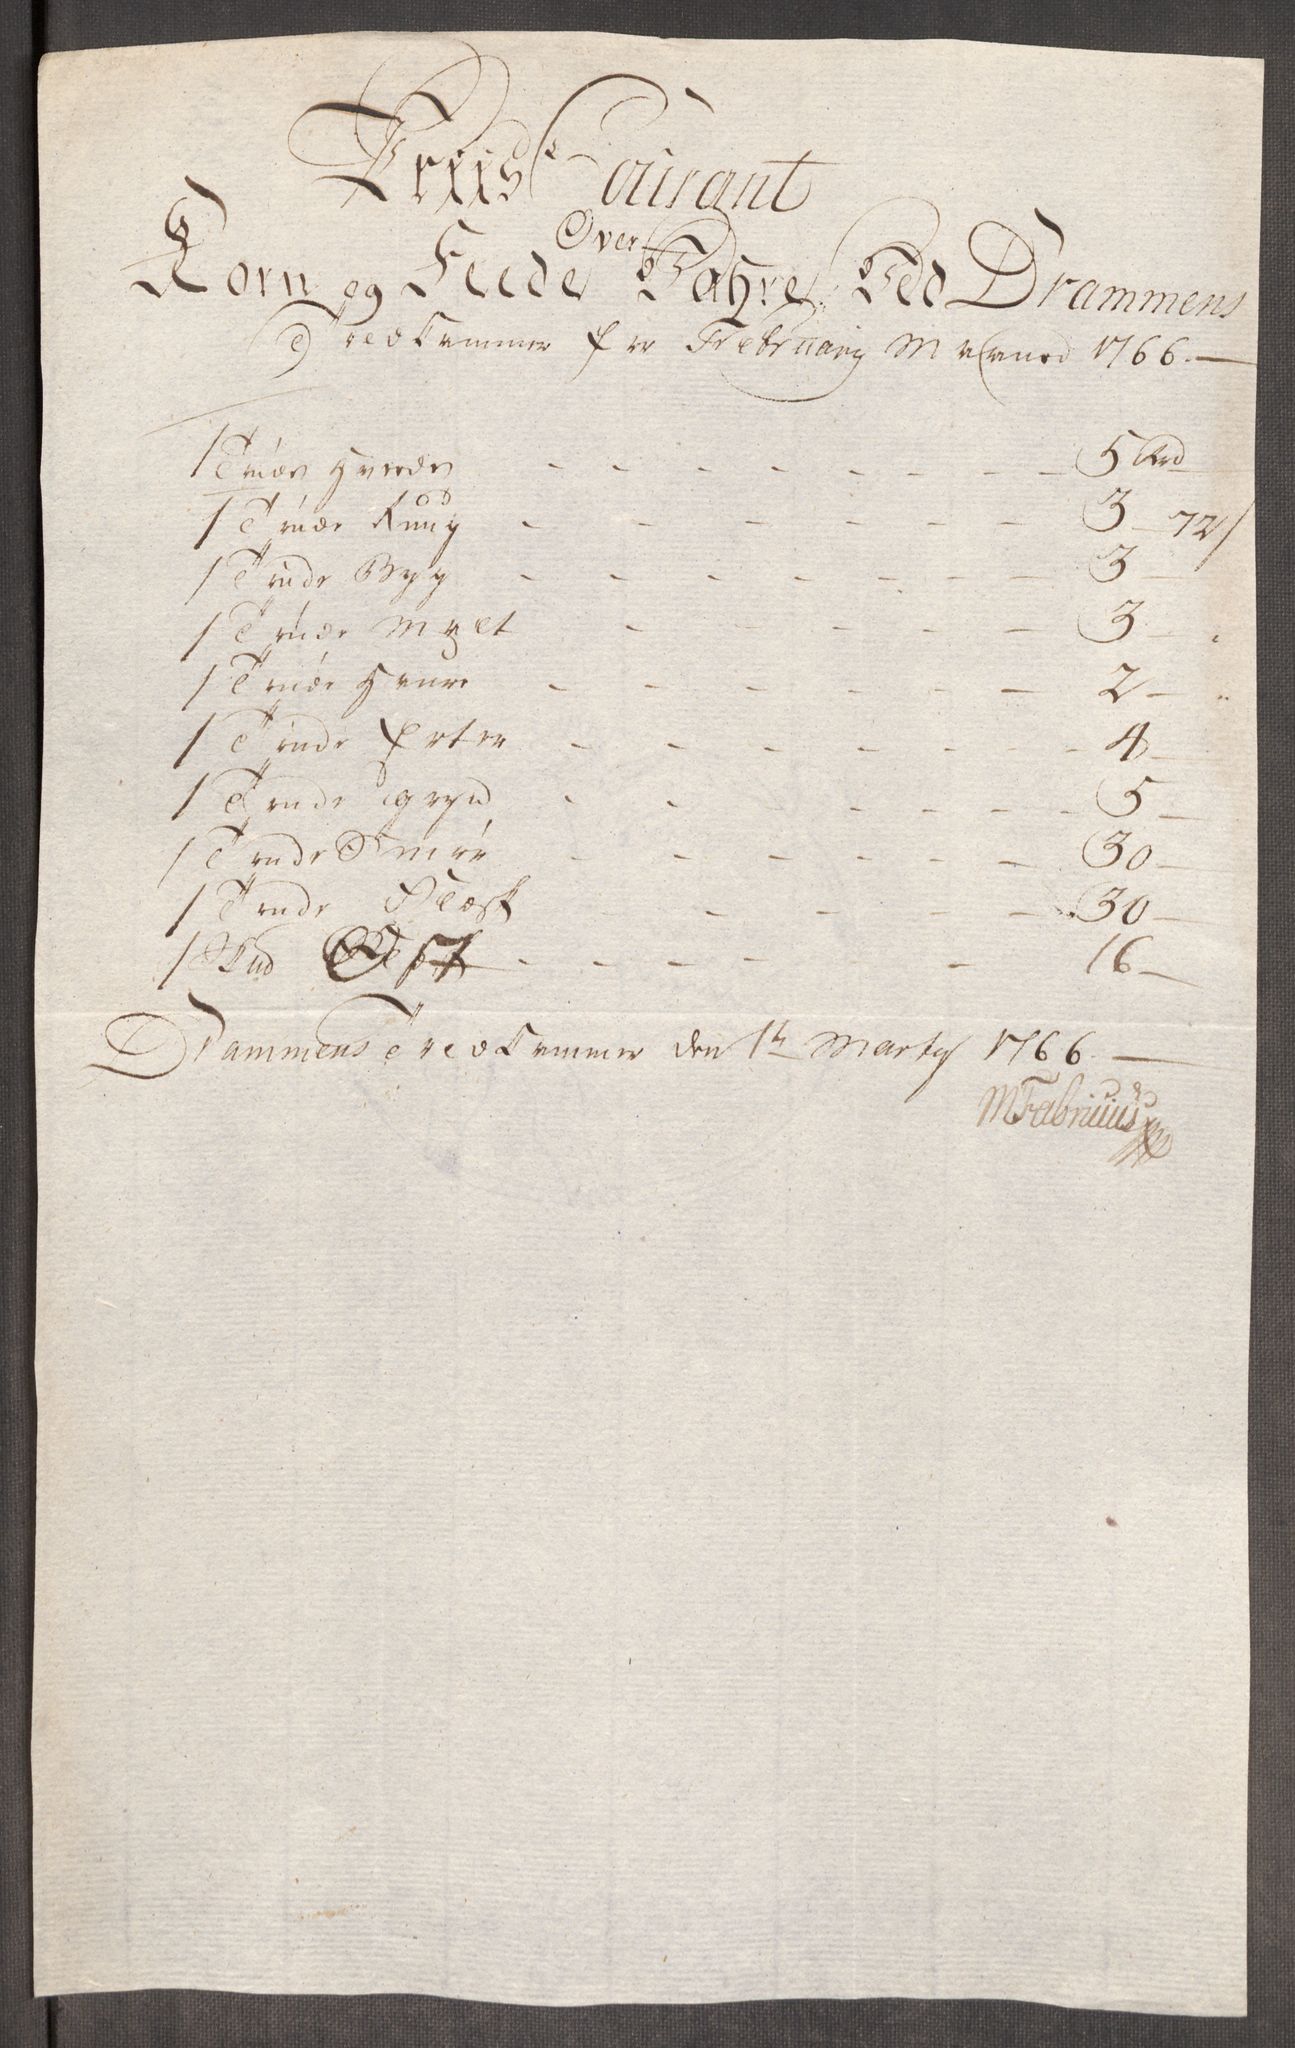 Priis Courant
Over
Korn og Feede Wahre Ved Drammens
Tredkammer for February Maaned 1766.
1 Tønde Hvede - - - - - - 5 Rd
1 Tønde Rúúg - - - - - - 3 - 72 s
1 Tønde Byg - - - - - - 3 -
1 Tønde Malt - - - - - 3 -
1 Tønde Havre - - - - - - 2 -
1 Tønde Erter - - - - - - 4 -
1 Tønde Gryn - - - - - - 5 -
1 Tønde Smør - - - - - 30 -
1 Tønde Flæsk - - - - - 30 -
1 - - - - - 16 -
Drammens Tredkammer den 1t Marty 1766.
MFabritius